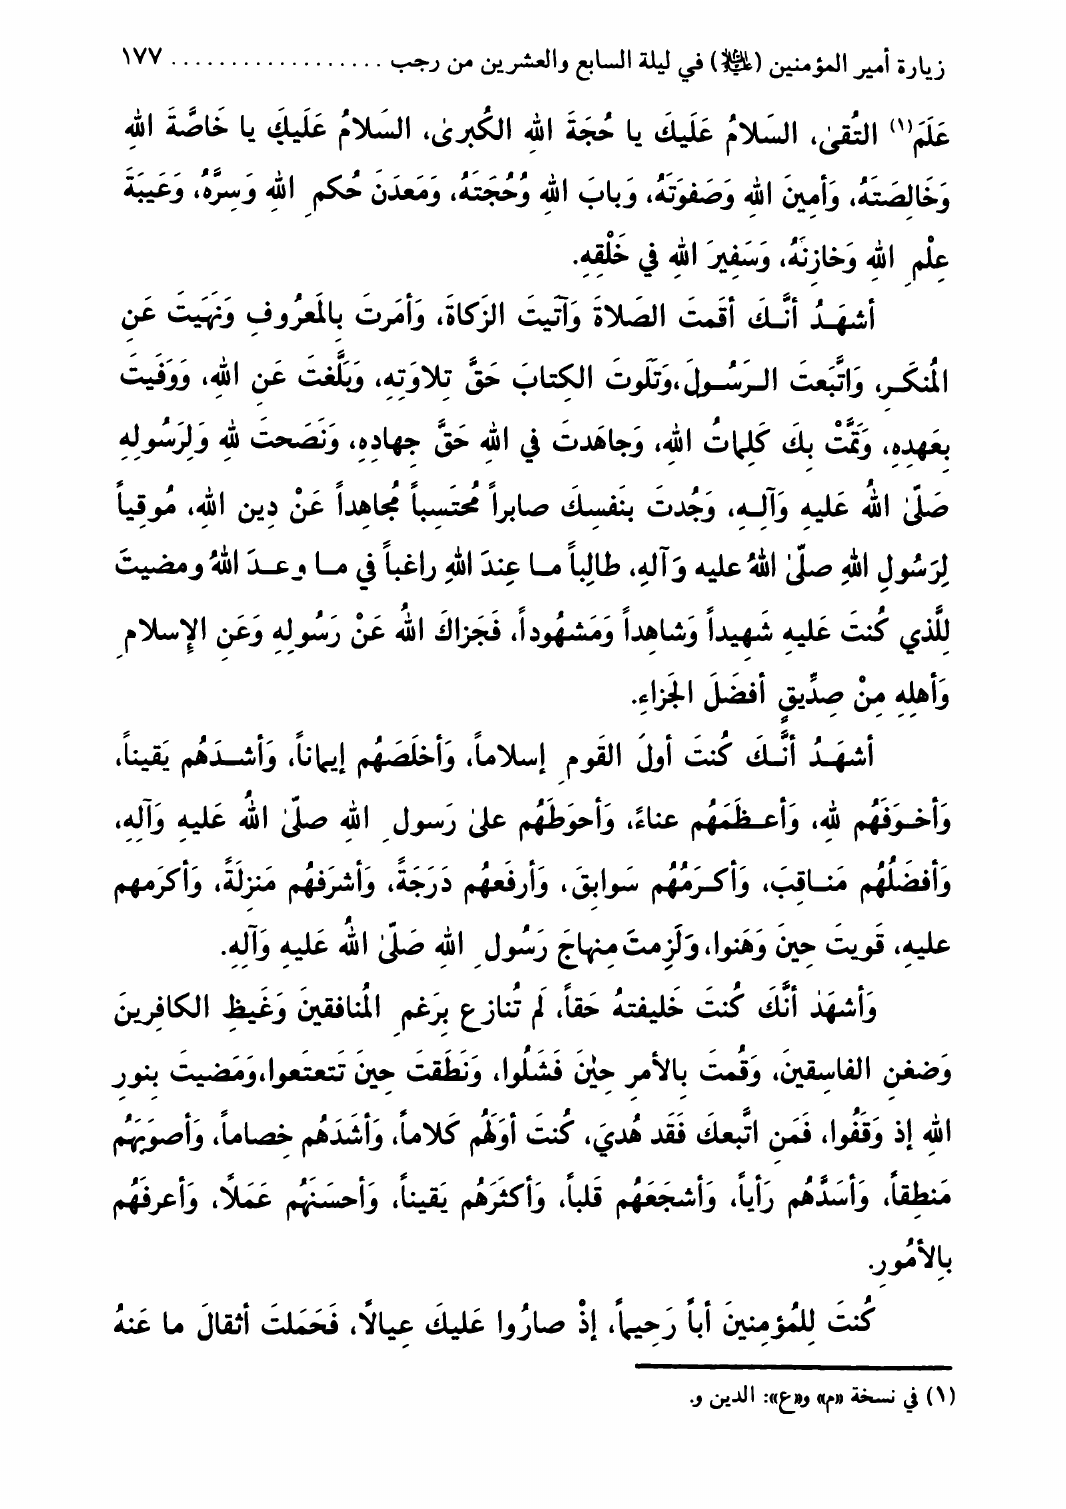 زيارة أمير المؤمنين (عليه السلام) في ليلة السابع والعشرين من رجب .................. ١٧٧
عَلَمَ(١) التُقىٰ، السَلامُ عَلَيكَ يا حُجَةَ اللهِ الكُبرىٰ، السَلامُ عَلَيكِ يا خَاصَّةَ اللهِ
وَخَالِصَتَهُ، وَأمِينَ اللهِ وَصَفوَتَهُ، وَبابَ اللهِ وُحُجَتَهُ، وَمَعدَنَ حُكمِ اللهِ وَسِرَّهُ، وَعَيبَةَ
عِلْمِ اللهِ وَخازِنَهُ، وَسَفِيرَ اللهِ في خَلْقِهِ.
أشهَدُ أنَّكَ أقَمتَ الصَلاةَ وَآتَيتَ الزَكاةَ، وَأمَرتَ بِالمَعرُوفِ وَنَهَيتَ عَنِ
المُنكَرِ، وَاتَّبَعتَ الرَسُولَ،وَتَلَوتَ الكِتابَ حَقَّ تِلاوَتِهِ، وَبَلَّغتَ عَنِ اللهِ، وَوَفَيتَ
بِعَهدِهِ، وَتَمَّتْ بِكَ كَلِماتُ اللهِ، وَجاهَدتَ في اللهِ حَقَّ جِهادِهِ، وَنَصَحتَ للهِ وَلِرَسُولِهِ
صَلّىٰ اللهُ عَليهِ وَآلِهِ، وَجُدتَ بنَفسِكَ صابراً مُحتَسِباً مُجاهِداً عَنْ دِينِ اللهِ، مُوقِياً
لِرَسُولِ اللهِ صلّىٰ اللهُ عليه وَآلهِ، طالِباً ما عِندَ اللهِ راغباً في ما وعدَ اللهُ ومضيتَ
لِلَّذي كُنتَ عَليهِ شَهِيداً وَشاهِداً وَمَشهُوداً، فَجَزاكَ اللهُ عَنْ رَسُولِهِ وَعَنِ الإسلامِ
وَأهلِهِ مِنْ صِدِّيقٍ أفضَلَ الجَزاءِ.
أشهَدُ أنَّكَ كُنتَ أولَ القَومِ إسلاماً، وَأخلَصَهُم إيماناً، وَأشدَهُم يَقيناً،
وَأخوَفَهُم للهِ، وَأعظَمَهُم عناءً، وَأحوَطَهُم علىٰ رَسولِ اللهِ صلّىٰ اللهُ عَليهِ وَآلِهِ،
وَأفضَلُهُم مَناقِبَ، وَأكرَمُهُم سَوابِقَ، وَأرفَعهُم دَرَجَةً، وَأشرَفهُم مَنزِلَةً، وَأكرَمهم
عليهِ، قَويتَ حِينَ وَهَنوا، وَلَزِمتَ مِنهاجَ رَسُولِ اللهِ صَلّىٰ اللهُ عَليهِ وَآلِهِ.
وَأشهَدُ أنَّكَ كُنتَ خَليفتهُ حَقاً، لَم تُنازع بِرَغمِ المُنافقينَ وَغَيظِ الكافِرينَ
وَضغنِ الفاسِقينَ، وَقُمتَ بِالأمرِ حِيْنَ فَشَلُوا، وَنَطَقتَ حِينَ تَتعتَعوا،وَمَضيتَ بِنورِ
اللهِ إذ وَقَفُوا، فَمَنِ اتَّبعكَ فَقَد هُديَ، كُنتَ أوَلَهُم كَلاماً، وَأشَدَهُم خِصاماً، وَأصوَبَهُم
مَنطِقاً، وَأسَدَّهُم رَأياً، وَأشجَعَهُم قَلباً، وَأكثَرَهُم يَقيناً، وَأحسَنَهُم عَمَلاً، وَأعرفَهُم
بِالأمُورِ.
كُنتَ لِلمُؤمِنينَ أباً رَحِيماً، إذْ صارُوا عَليكَ عِيالًا، فَحَمَلتَ أثقالَ ما عَنهُ
(١) في نسخة «م» و«ع»: الدين و.